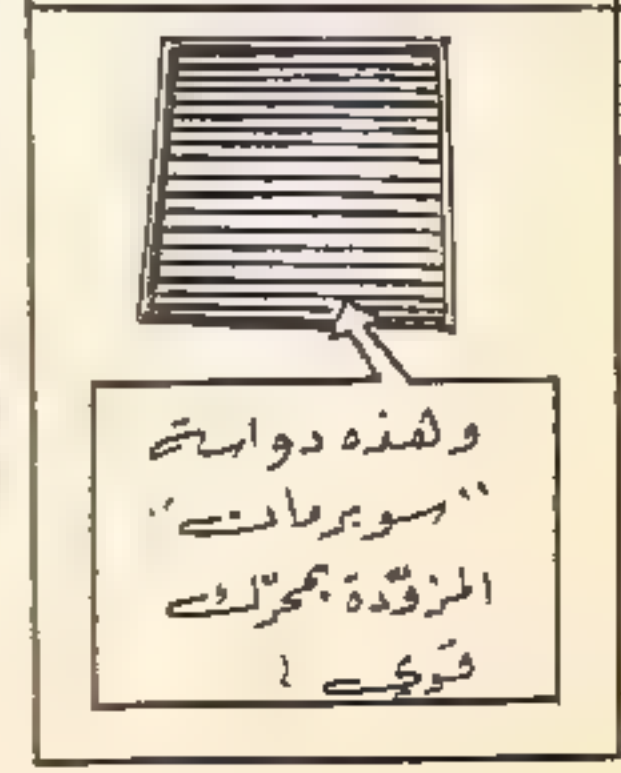 وهذه دواسة
"سوبرمات"
المزوّدة بمحرّك
قوي !